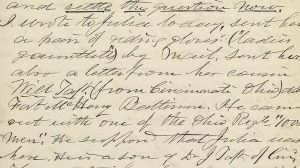 and settle the question now.
I wrote to Julia to day, sent her
a pair of riding gloves, ("ladies
gauntlets") by mail, sent her
also a letter from her cousin
Will Taft (from Cincinnati Ohio)
Fort McHenry Baltimore. He came
out with one of the Ohio Regts "100 days
men". He supposed that Julia was
here. He is a son of Dr J Taft of Cin